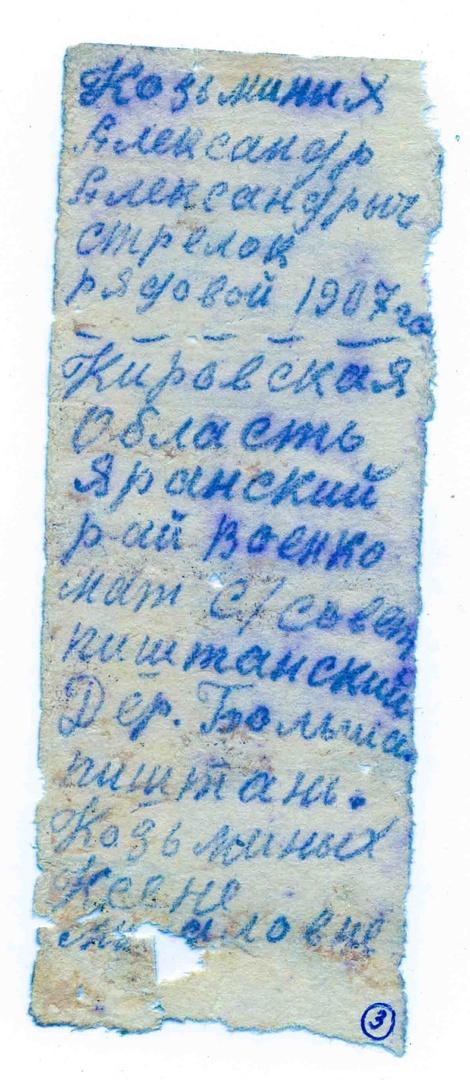 Козьминых
Александр
Александрыч
стрелок
рядовой 1907 го
Кировская
Область
Яранский
рай военко
мат с/совет
пиштанский
Дер. Больша
пиштань.
Козьминых
Ксене
ловне
3